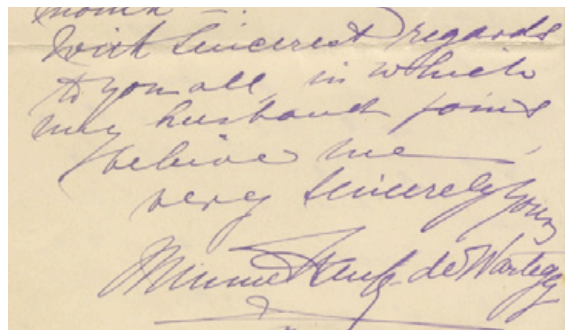 month –.
With sincerest regards
to you all, in which
my husband joins
believe me –
very sincerely yours
Minnie Hauk-de Wartegg